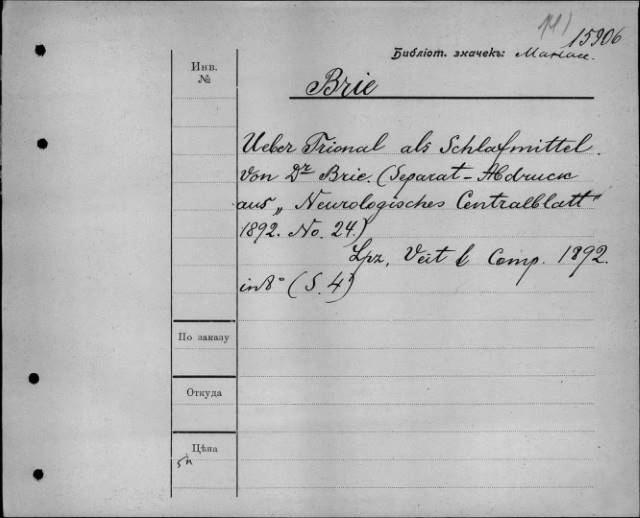 15906
Библіот. значекъ:
Инв.
№
Brie
Ueber Trional als Schlafmittel.
Von Dr Brie. (Separat-Abdruck
aus „Neurologisches Centralblatt"
1892. No. 24.)
Lpz, Veit & Comp. 1892.
in 8° (S. 4)
По заказу
Откуда
Цѣна